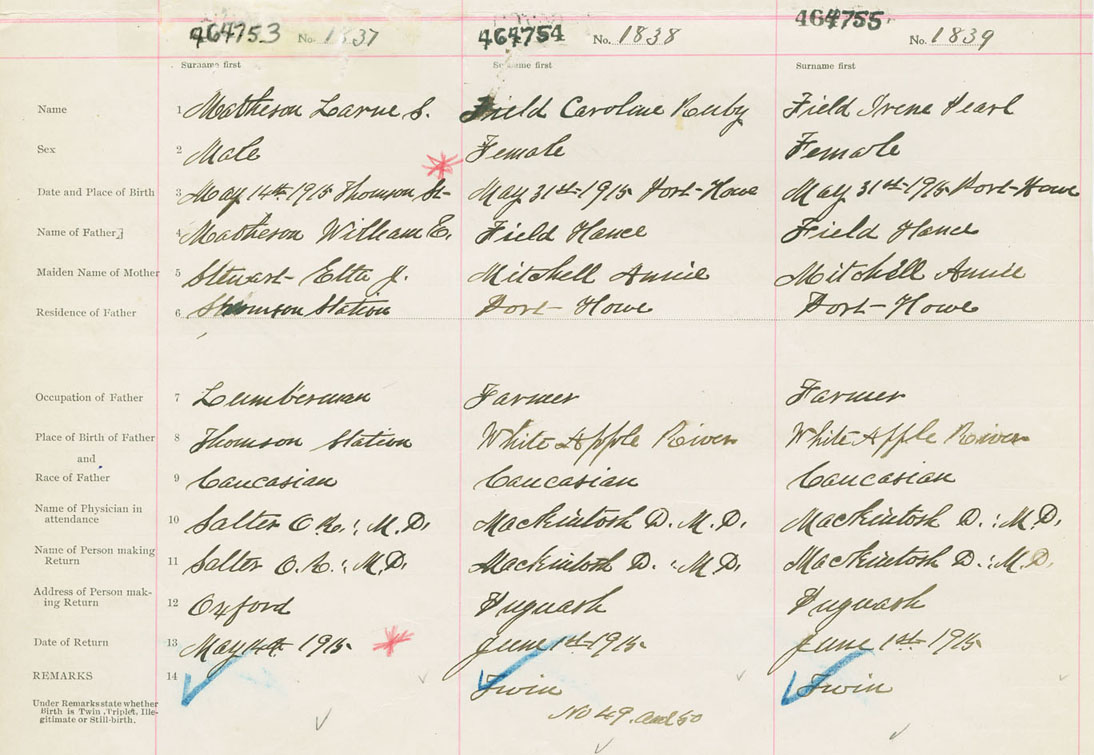 464753 No. 1837 464754 No. 1838 464755 No. 1839
Surname first Surname first Surname first
Name 1 Matheson Larne S. Field Caroline Ruby Field Irene Pearl
Sex 2 Male Female Female
Date and Place of Birth 3 May 14th 1915 Thomson St- May 31st-1915 Port-Howe May 31st-1915 Port-Howe
Name of Father 4 Matheson William E. Field Hance Field Hance
Maiden Name of Mother 5 Stewart- Etta J. Mitchell Annie Mitchell Annie
Residence of Father 6 Thomson Station Port-Howe Port-Howe
Occupation of Father 7 Lumberman Farmer Farmer
Place of Birth of Father 8 Thomson Station White Apple River White Apple River
and
Race of Father 9 Caucasian Caucasian Caucasian
Name of Physician in
attendance 10 Salter O.R.: M.D. Mackintosh D. M.D. Mackintosh D.: M.D.
Name of Person making
Return 11 Salter O.R.: M.D. Mackintosh D.: M.D. Mackintosh D.: M.D.
Address of Person mak-
ing Return 12 Oxford Pugwash Pugwash
Date of Return 13 May 1915 June 1st-1915 June 1st-1915
REMARKS 14 Twin Twin
Under Remarks state whether
Birth is Twin, Triplet, Ille-
gitimate or Still-birth.
No 49. and 50